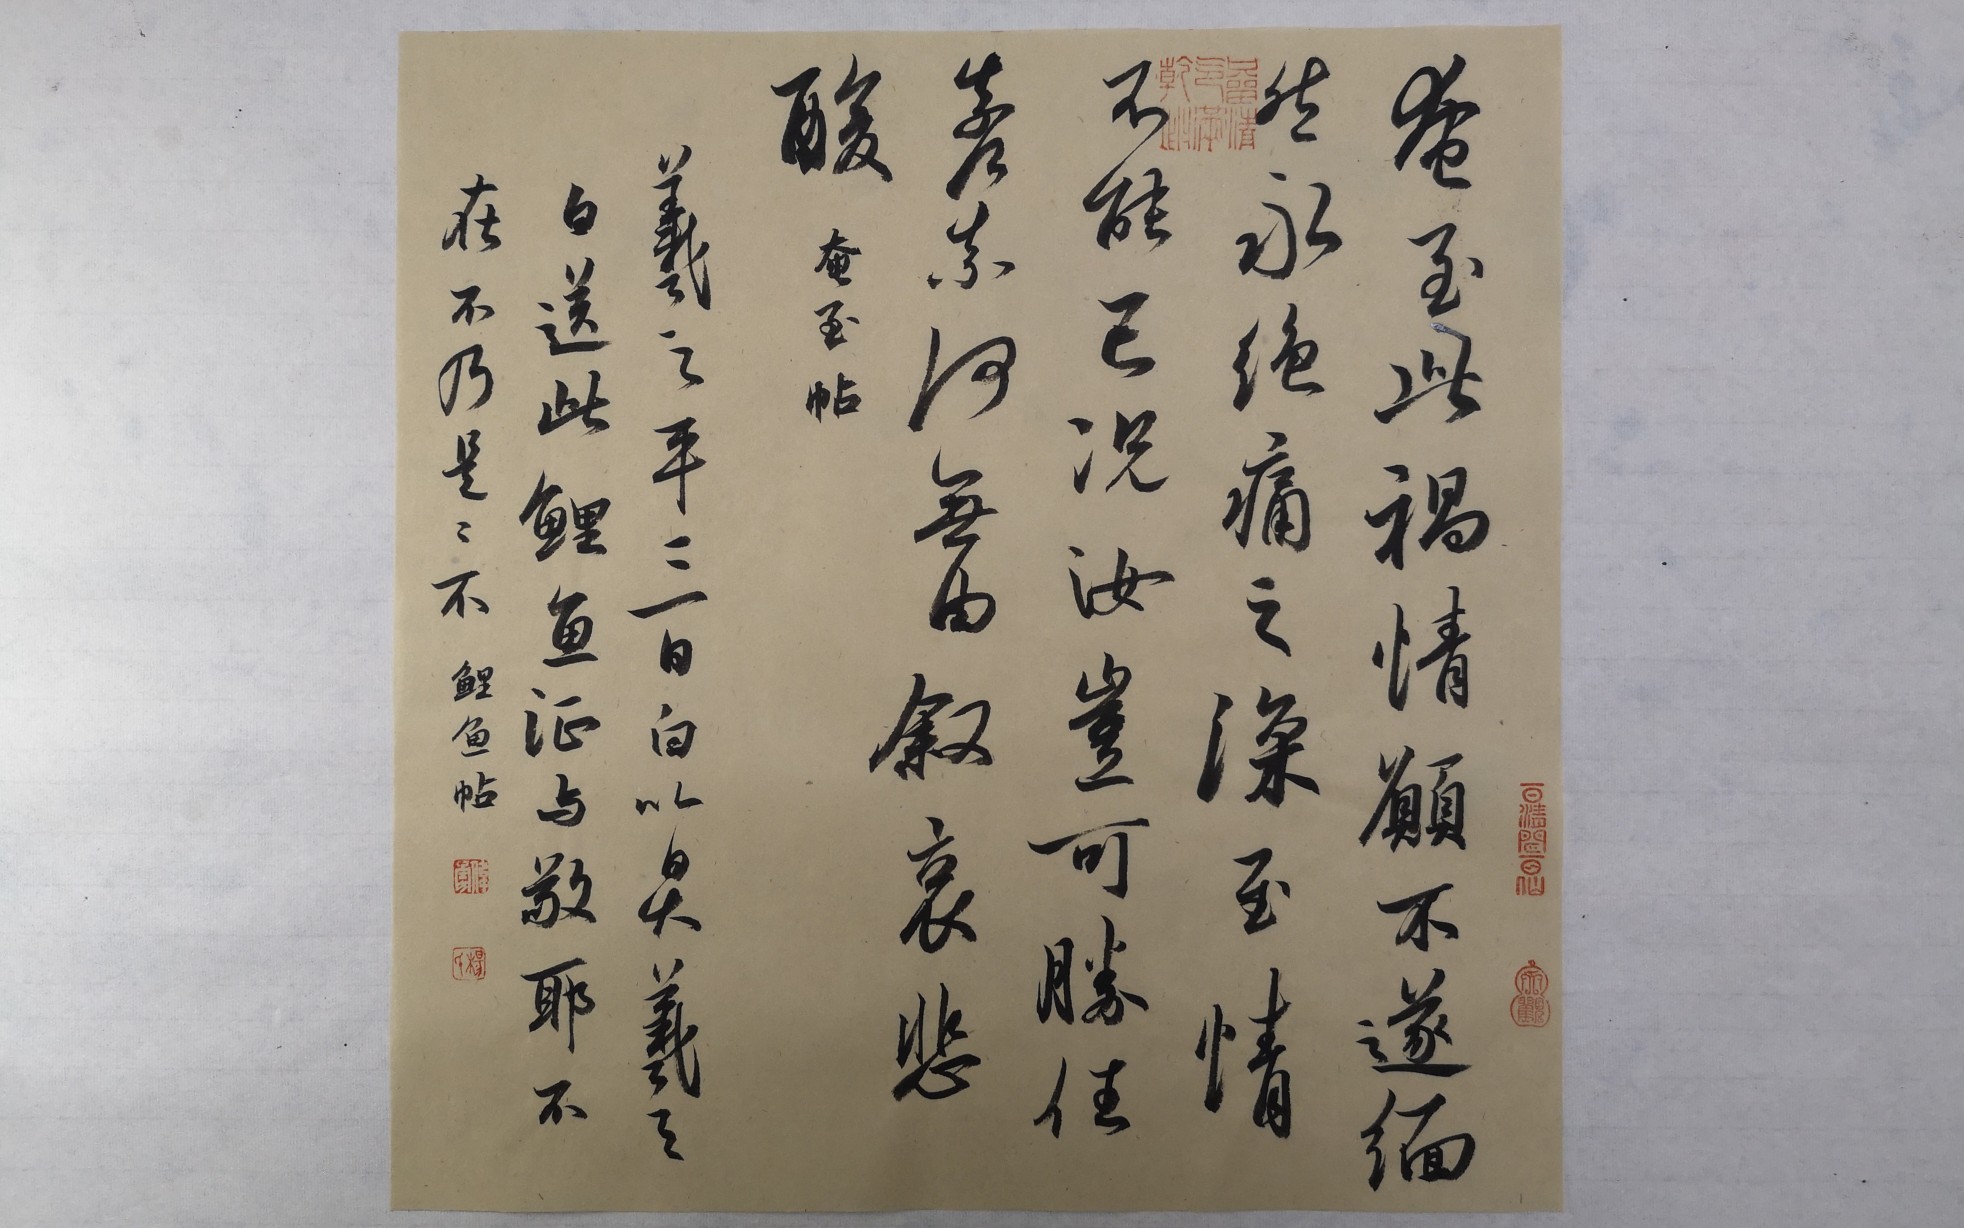 奄至此禍情願不遂缅
然永絶痛之深至情
不能已况汝豈可勝任
奈何無由叙哀悲
酸 奄至帖
羲之平三日白以昊羲之
白送此鲤鱼征与敬耶不
在不乃是〻不 鲤鱼帖